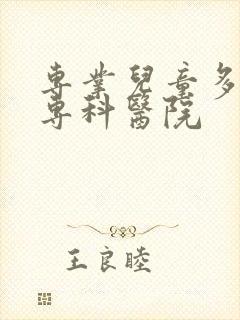 專業兒童多
專科醫院
王良睦